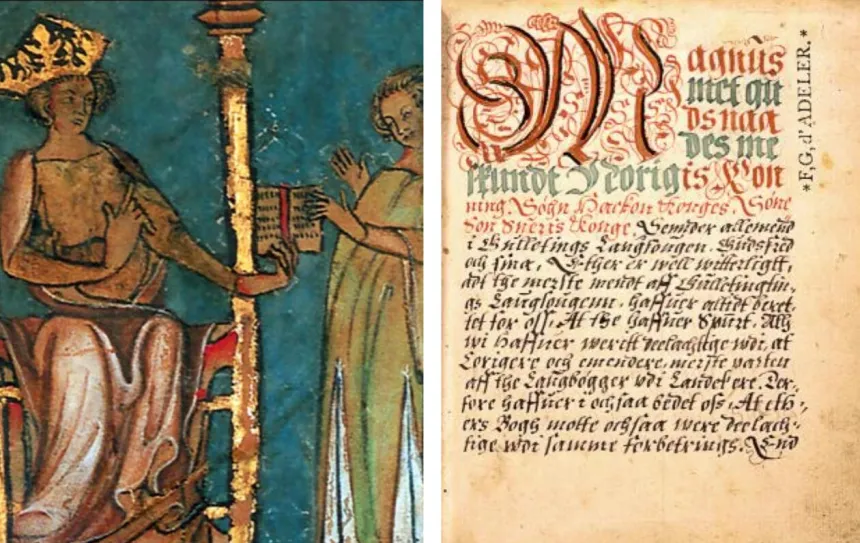 Magnus
met gu
ds naa
des me
skundt Norigis Kon
ning Søgn Hackon Konges. Søne
Søn Sueris Konge. Sennder allemend
i Gulletings Laugsougen. Gudsfred
och sina,
er well witterligtt,
att the merste mendt aff Gulletingsin,
gs Laugsougenn, haffuer altidt beret,
tet for oss. At the haffuer Spurt.
wi haffuer werett deelachtige wdi, at
Corigere och emendere, merste parten
aff the Laugbøgger wdi Landet ere. Der,
fore haffuer i ochsaa bedet oss. At eth,
ers Bogh motte ochsaa were deelach,
tige wdi samme forbetrings. End
*F,G,d'ADELER.*